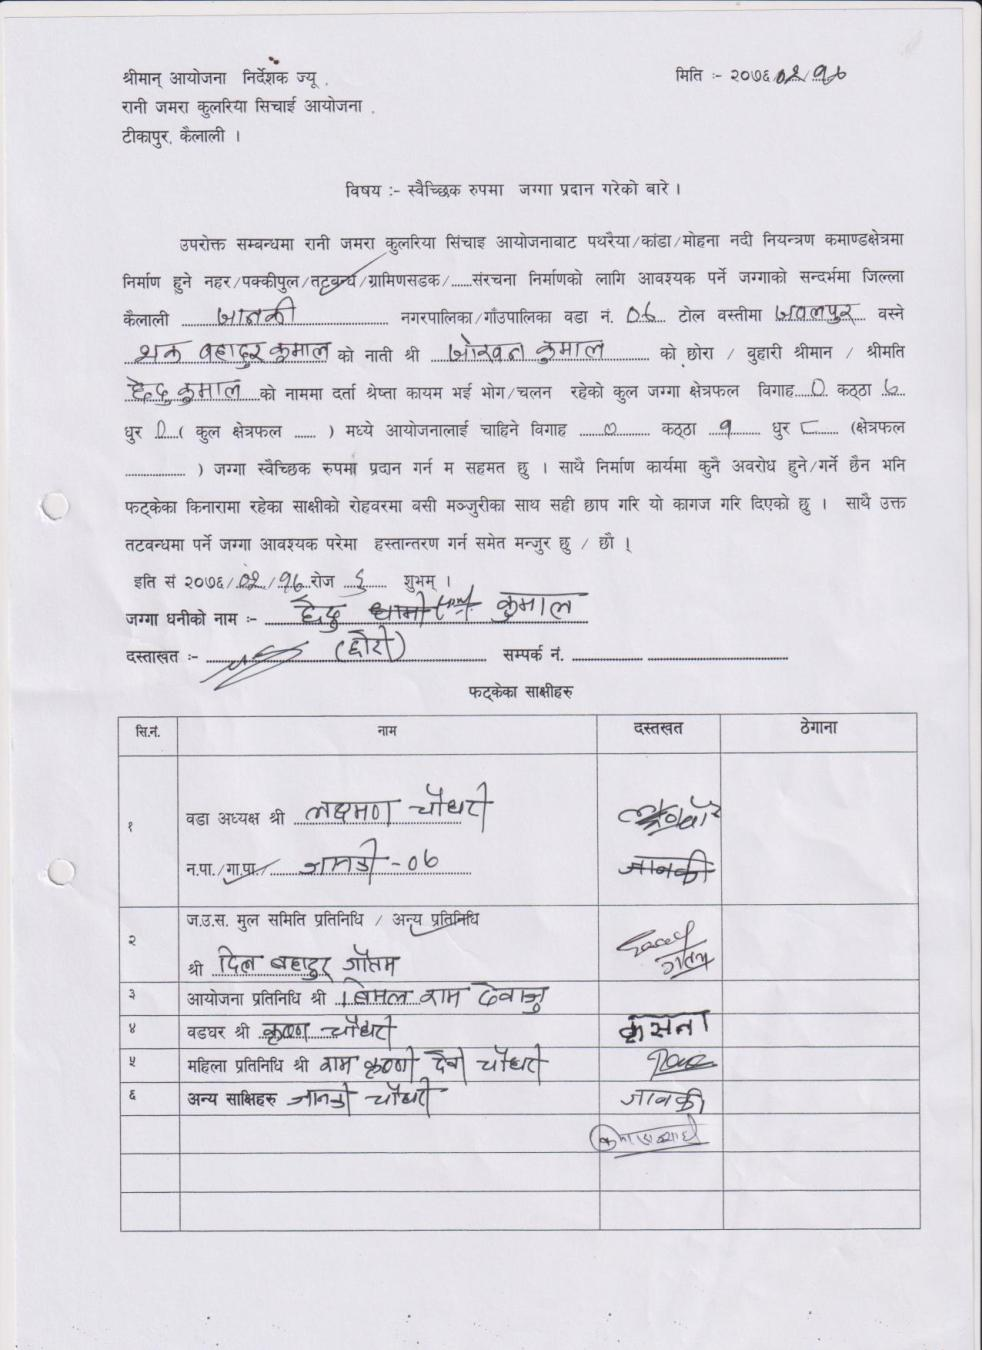 श्रीमान् आयोजना निर्देशक ज्यू .
मिति :- २०७६/०२/१६
रानी जमरा कुलरिया सिचाई आयोजना .
टीकापुर, कैलाली ।
विषय :- स्वैच्छिक रुपमा जग्गा प्रदान गरेको बारे ।
उपरोक्त सम्बन्धमा रानी जमरा कुलरिया सिंचाइ आयोजनावाट पथरैया/कांडा/मोहना नदी नियन्त्रण कमाण्डक्षेत्रमा
निर्माण हुने नहर/पक्कीपुल/तट्वन्ध/ग्रामिणसडक/......संरचना निर्माणको लागि आवश्यक पर्ने जग्गाको सन्दर्भमा जिल्ला
कैलाली जानकी नगरपालिका/गाँउपालिका वडा नं. ०६ टोल वस्तीमा जवलपुर वस्ने
थक वहादुर कुमाल को नाती श्री जोखन कुमाल को छोरा / बुहारी श्रीमान / श्रीमति
छेदु कुमाल को नाममा दर्ता श्रेष्ता कायम भई भोग/चलन रहेको कुल जग्गा क्षेत्रफल विगाह 0 कठ्ठा ६
धुर 0 ( कुल क्षेत्रफल ...... ) मध्ये आयोजनालाई चाहिने विगाह ० कठ्ठा १ धुर ८ (क्षेत्रफल
................ ) जग्गा स्वैच्छिक रुपमा प्रदान गर्न म सहमत छु । साथै निर्माण कार्यमा कुनै अवरोध हुने/गर्ने छैन भनि
फट्केका किनारामा रहेका साक्षीको रोहवरमा वसी मञ्जुरीका साथ सही छाप गरि यो कागज गरि दिएको छु । साथै उक्त
तटवन्धमा पर्ने जग्गा आवश्यक परेमा हस्तान्तरण गर्न समेत मन्जुर छु / छौ ।
इति सं २०७६/०२/१६ रोज ५ शुभम् ।
जग्गा धनीको नाम :- छेदु कुमाल
दस्ताखत :- (छोरो) सम्पर्क नं.
फट्केका साक्षीहरु
सि.नं. नाम दस्तखत ठेगाना
१ वडा अध्यक्ष श्री लक्ष्मण चौधरी
न.पा./गा.पा./ जानकी - ०६ जानकी
२ ज.उ.स. मुल समिति प्रतिनिधि / अन्य प्रतिनिधि
श्री दिल बहादुर गौतम
३ आयोजना प्रतिनिधि श्री बिमल राम देवाजु
४ वडघर श्री कृष्ण चौधरी कृसना
५ महिला प्रतिनिधि श्री राम कृष्णी देवी चौधरी
६ अन्य साक्षिहरु जानकी चौधरी जानकी